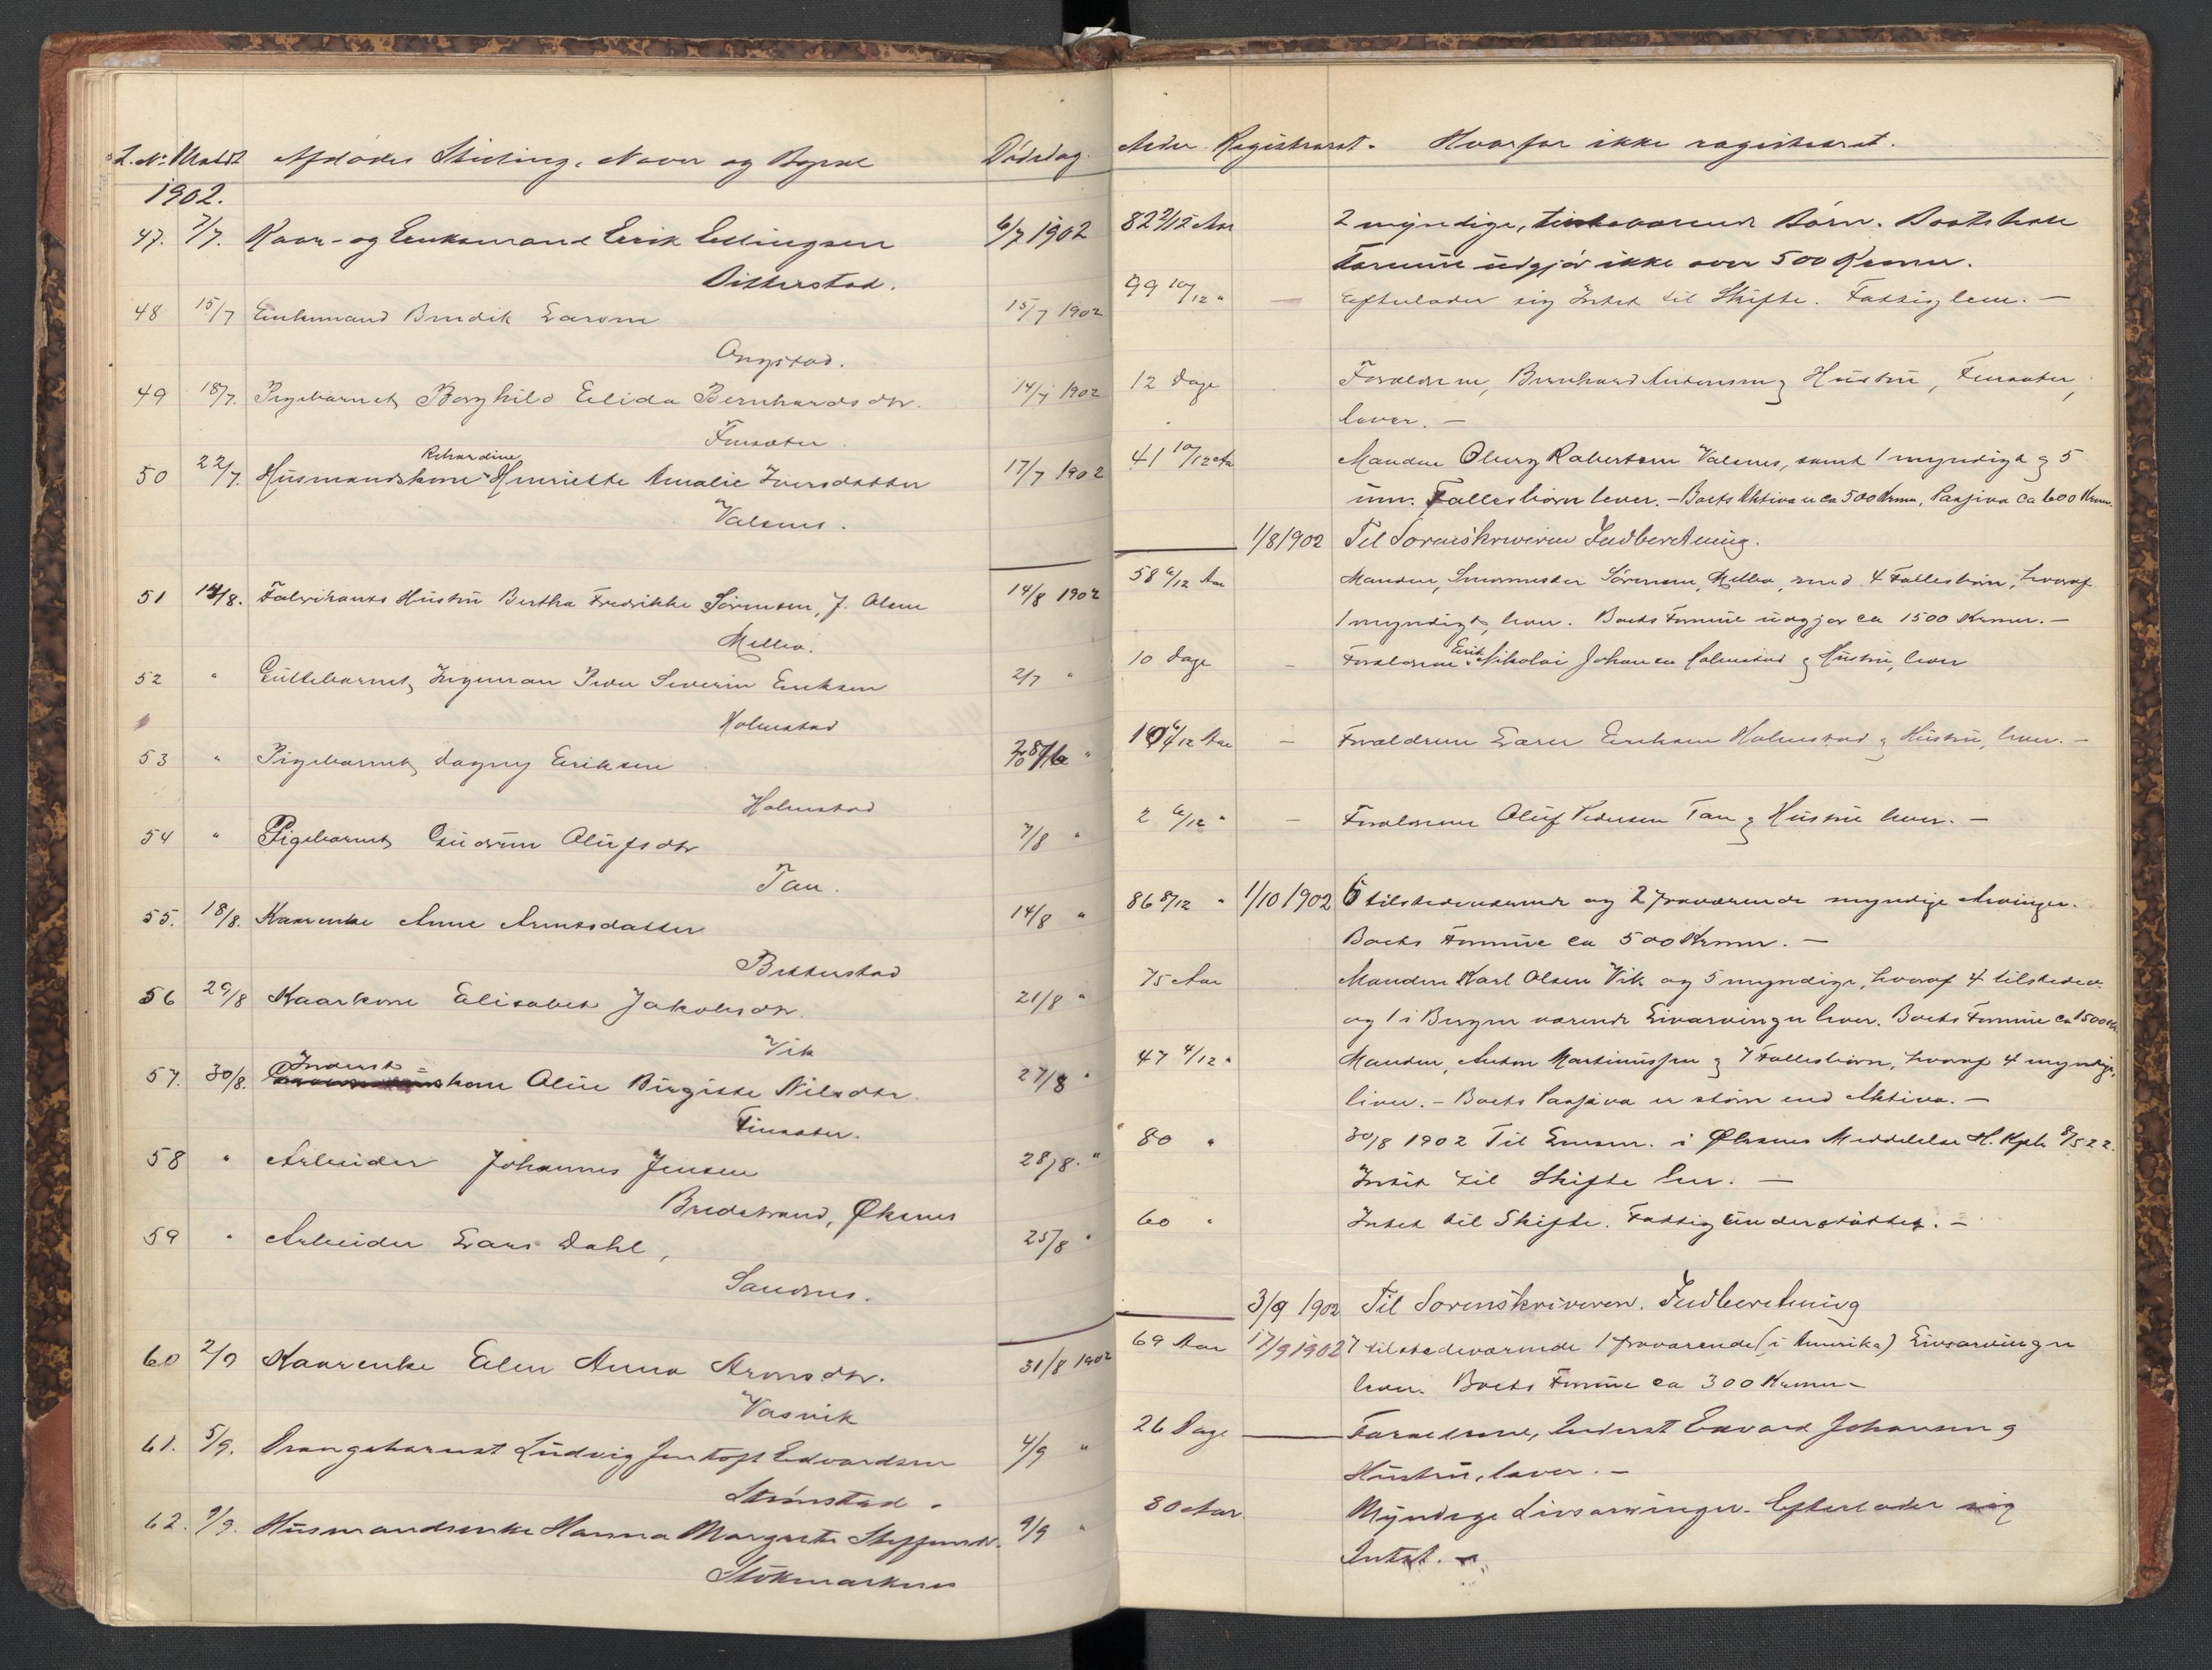 L. No Meldt Afdødes Stilling, Navn og Bopæl Dødsdag Alder Registreret. Hvorfor ikke registreret.
1902.
47. 7/7. Kaar- og Enkemand Erik Ellingsen 6/7 1902 82 2/12 Aar 2 myndige, tilstedeværende Børn. Boets hele
Bitterstad. Formue udgjør ikke over 500 Kroner.
48 15/7 Enkemand Bendik Larsen 15/7 1902 99 10/12 " — Efterlader sig Intet til Skifte. Fattiglem. —
Ongstad.
49 18/7. Pigebarnet Borghild Elida Bernhardsdtr. 14/7 1902 12 Dage Forældrene, Bernhard Antonsen og Hustru, Finsæter,
Finsæter. lever. —
50 22/7. Husmandskone Rikardine Henriette Amalie Iversdatter 17/7 1902 41 10/12 Aar Manden Oluf Robertsen Valsnes, samt 1 myndigt og 5
Valsnes. umn. Fællesbørn lever. — Boets Aktiva er ca 500 Kroner, Passiva ca 600 Kroner.
1/8 1902 Til Sorenskriveren Indberetning.
51 14/8. Fabrikants Hustru Bertha Fredrikke Sørensen, f. Olsen 14/8 1902 58 6/12 Aar Manden, Sørensen, Melbo, med 4 Fællesbørn, hvoraf
Melbo. 1 myndigt, lever. Boets Formue udgjør ca 1500 Kroner. —
52 " Guttebarnet Ingeman Peder Severin Eriksen 2/7 " 10 Dage — Forældrene Erik Nikolai Johansen Holmstad og Hustru, lever
Holmstad
53 " Pigebarnet Dagny Eriksen 28/6 " 6/12 Aar — Forældrene Lars Eriksen Holmstad og Hustru, lever. —
Holmstad
54 " Pigebarnet Gudrun Olufsdtr 7/8 " 2 6/12 " — Forældrene Oluf Pedersen Tan og Hustru lever. —
Tan.
55. 18/8. Kaarenke Anne Arntsdatter 14/8 " 86 8/12 " 1/10 1902 6 tilstedeværende og 2 fraværende myndige Arvinger.
Bitterstad Boets Formue ca 500 Kroner. —
56 29/8 Kaarkone Elisabet Jakobsdtr. 21/8 " 75 Aar Manden Karl Olsen Vik og 5 myndige, hvoraf 4 tilstedev.
Vik og 1 i Bergen værende Livsarvinger lever. Boets Formue ca 1500 Kr.
57. 30/8. Inderst=kone Oline Birgitte Nilsdtr. 27/8 " 47 4/12 " Manden, Anton Martinussen og 7 Fællesbørn, hvoraf 4 myndige,
Finsæter. lever. — Boets Passiva er større end Aktiva. —
58 " Arbeider Johannes Jensen 28/8. " 80 " 30/8 1902 Til Lensm. i Øksnes Meddelelse
Bredstrand, Øksnes Intet til Skifte her. —
59 " Arbeider Lars Dahl, 25/8 " 60 " Intet til Skifte. Fattigunderstøttet. —
Sandnes.
3/9 1902 Til Sorenskriveren. Indberetning
60 2/9 Kaarenke Elen Anna Aronsdtr. 31/8 1902 69 Aar 17/9 1902 7 tilstedeværende 1 fraværende (i Amerika) Livsarvinger
Vasvik lever. Boets Formue ca 300 Kroner. —
61. 5/9. Drengebarnet Ludvig Jentoft Edvardsen 4/9 " 26 Dage — Forældrene, Inderst Edvard Johansen og
Strømstad. Hustru, lever. —
62. 9/9. Husmandsenke Hanna Margrete Steffensdtr. 9/9 " 80 Aar Myndige Livsarvinger. Efterlader sig
Stokmarknes Intet. —